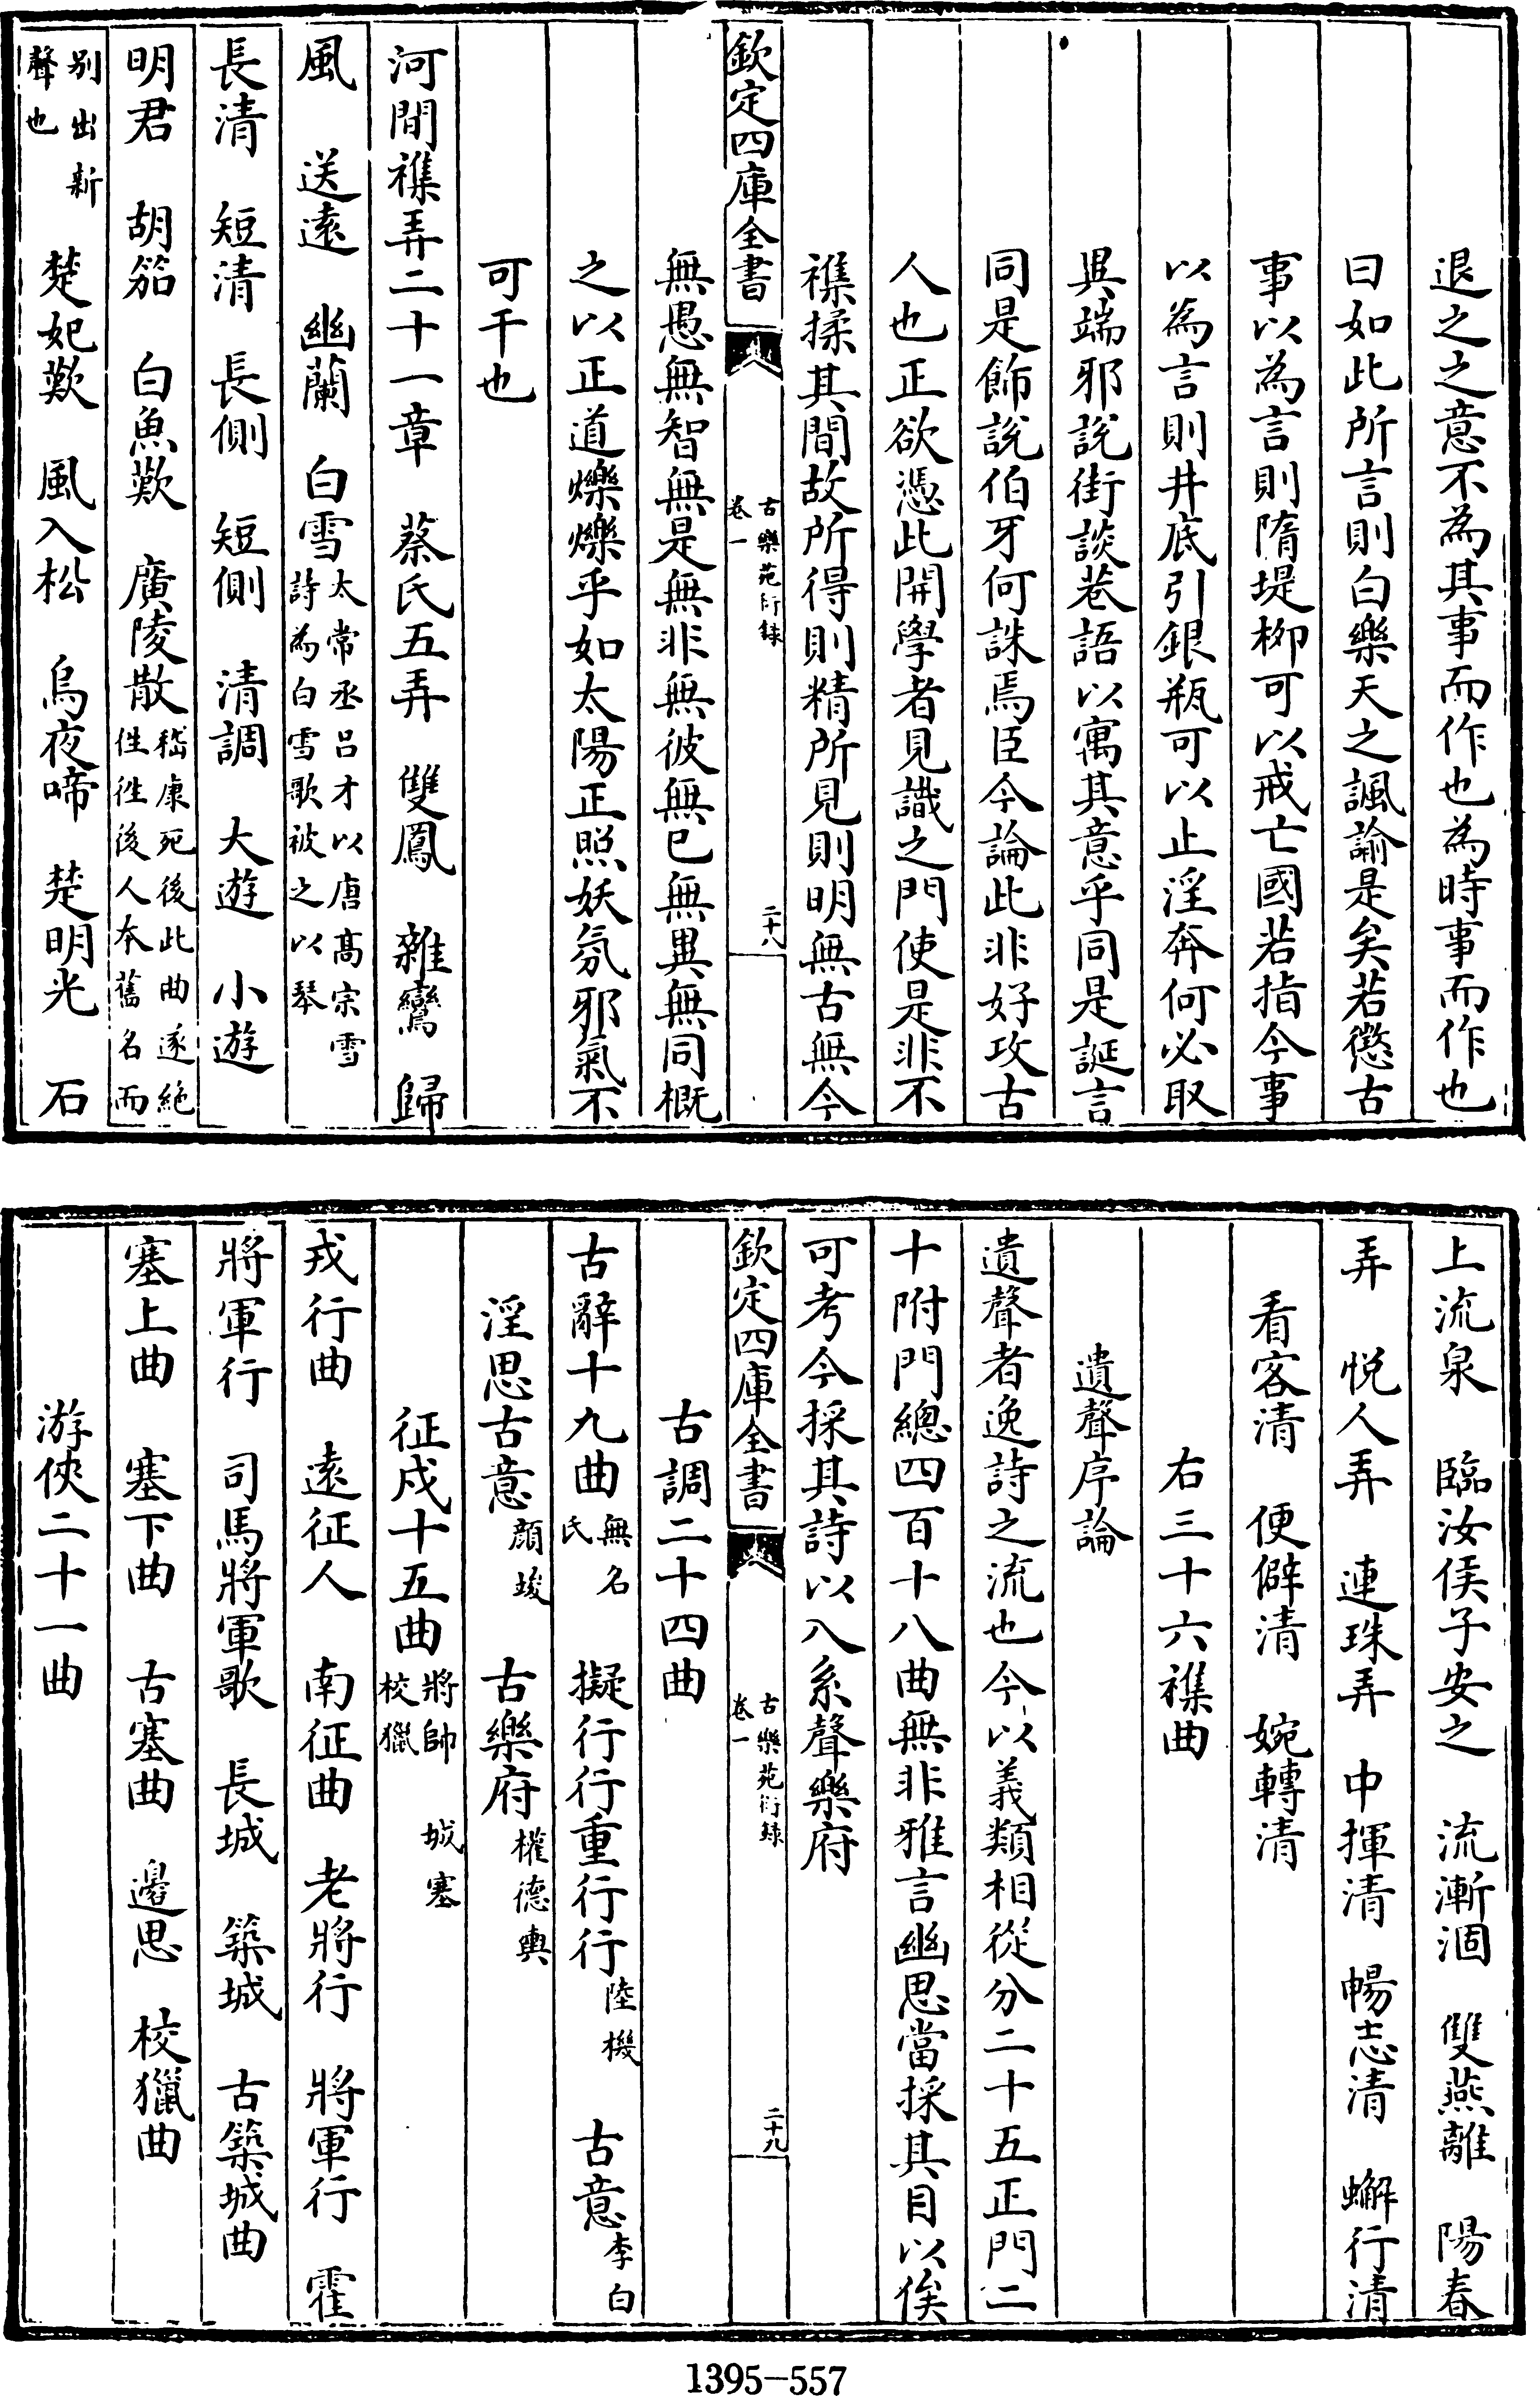 退之之意不為其事而作也為時事而作也
曰如此所言則白樂天之諷諭是矣若懲古
事以為言則隋堤柳可以戒亡國若指今事
以為言則井底引銀瓶可以止淫奔何必取
異端邪說街談巷語以寓其意乎同是誕言
同是飾說伯牙何誅焉臣今論此非好攻古
人也正欲憑此開學者見識之門使是非不
襍揉其間故所得則精所見則明無古無今
欽定四庫全書 古樂苑衍録 卷一 二十八
無愚無智無是無非無彼無已無異無同概
之以正道爍爍乎如太陽正照妖氛邪氣不
可干也
河間襍弄二十一章 蔡氏五弄 雙鳳 離鸞 歸
風 送遠 幽蘭 白雪太常丞呂才以唐髙宗雪詩為白雪歌被之以琴
長清 短清 長側 短側 清調 大遊 小遊
明君 胡笳 白魚歎 廣陵散嵇康死後此曲遂絶往往後人本舊名而
别出新聲也 楚妃歎 風入松 烏夜啼 楚明光 石
上流泉 臨汝侯子安之 流漸洄 雙燕離 陽春
弄 悦人弄 連珠弄 中揮清 暢志清 蠏行清
看客清 便僻清 婉轉清
右三十六襍曲
遺聲序論
遺聲者逸詩之流也今以義類相從分二十五正門二
十附門總四百十八曲無非雅言幽思當採其目以俟
可考今採其詩以入系聲樂府
欽定四庫全書 古樂苑衍録 卷一 二十九
古調二十四曲
古辭十九曲無名氏 擬行行重行行陸機 古意李白
淫思古意顔竣 古樂府權德輿
征戍十五曲將帥校獵 城塞
戎行曲 遠征人 南征曲 老將行 將軍行 霍
將軍行 司馬將軍歌 長城 築城 古築城曲
塞上曲 塞下曲 古塞曲 邊思 校獵曲
游俠二十一曲
1395-557